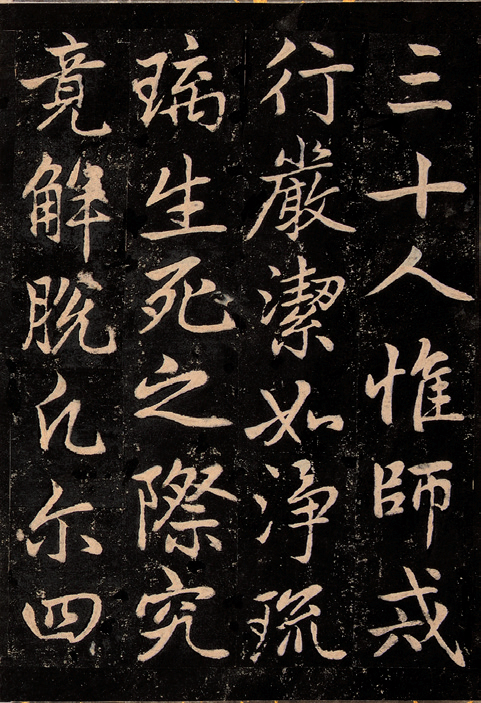 三十人惟師戒
行嚴潔如淨琉
璃生死之際究
竟解脫凡尔四